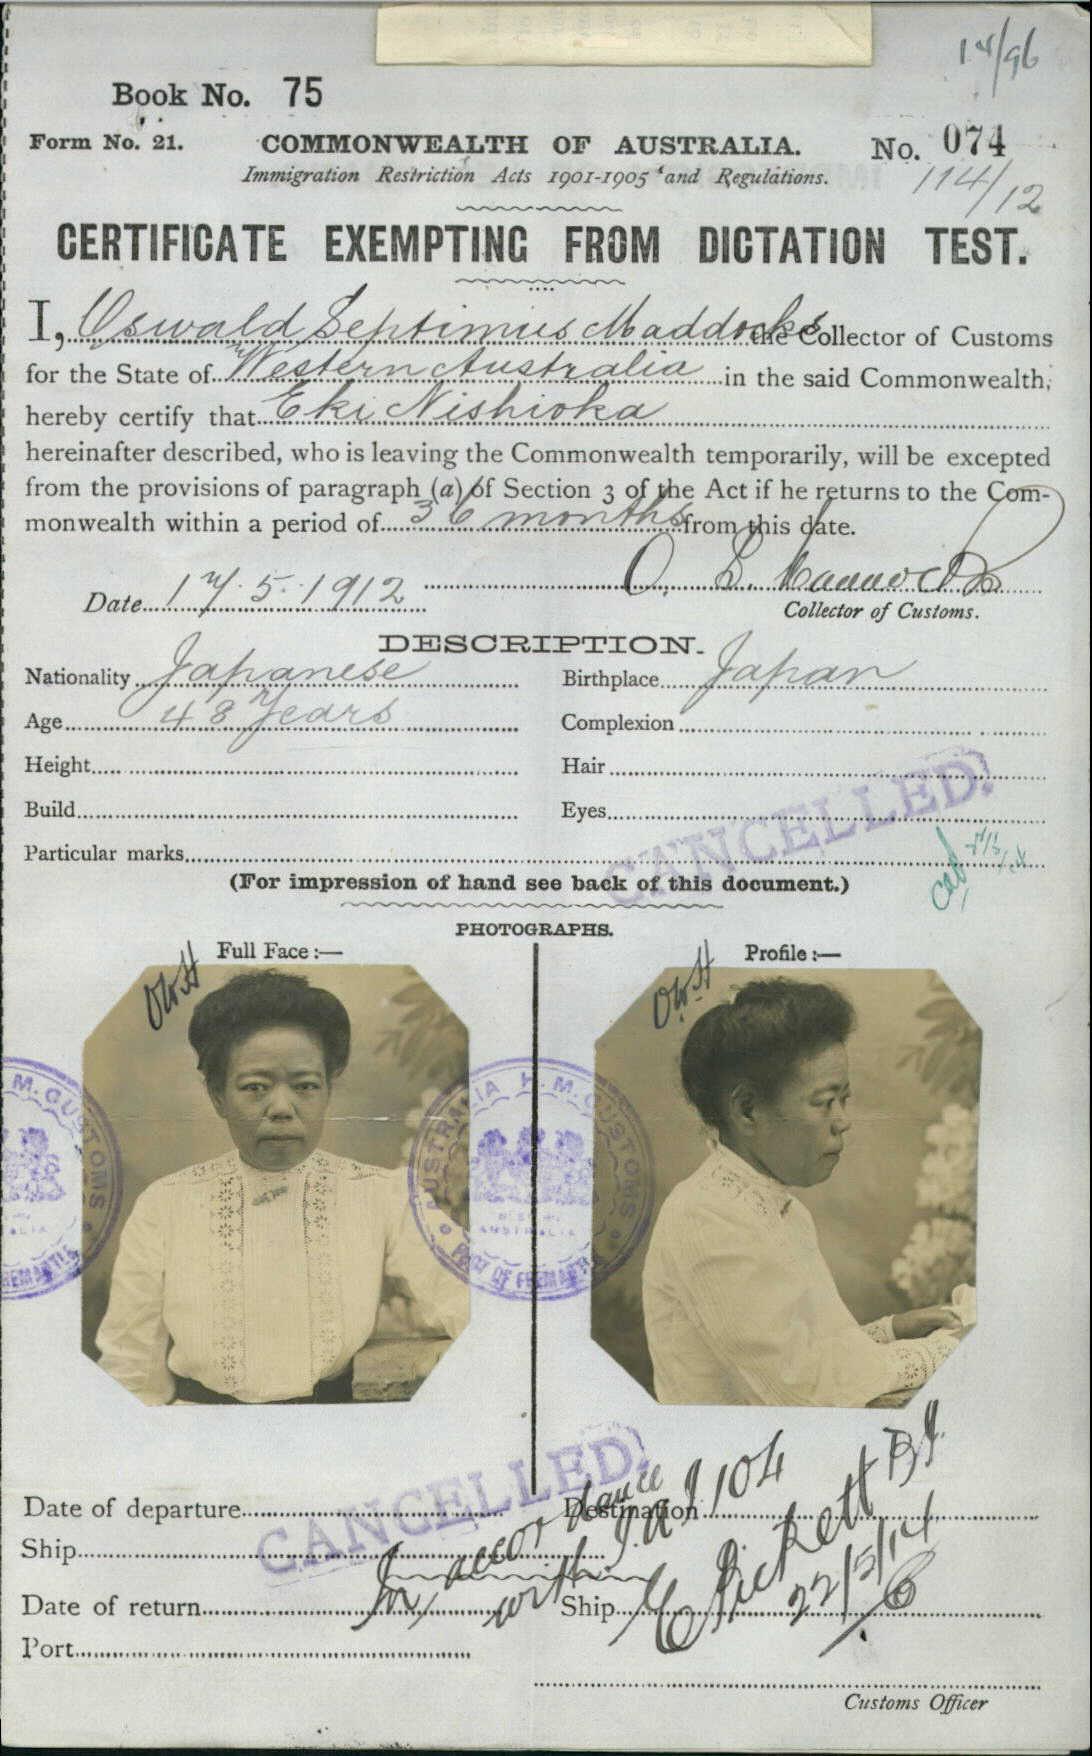 14/96
Book No. 75
Form No. 21. COMMONWEALTH OF AUSTRALIA. No. 074
Immigration Restriction Acts 1901-1905 and Regulations. 114/12
CERTIFICATE EXEMPTING FROM DICTATION TEST.
I, Oswald Septimus Maddocks the Collector of Customs
for the State of Western Australia in the said Commonwealth,
hereby certify that Eki Nishioka
hereinafter described, who is leaving the Commonwealth temporarily, will be excepted
from the provisions of paragraph (a) of Section 3 of the Act if he returns to the Com-
monwealth within a period of 36 months from this date.
Date 17.5.1912 O. S. Maddocks
Collector of Customs.
DESCRIPTION.
Nationality Japanese Birthplace Japan
Age 48 Years Complexion
Height Hair
Build Eyes
CANCELLED.
Particular marks
(For impression of hand see back of this document.)
PHOTOGRAPHS.
Full Face :— Profile :—
M. CUSTOMS FREMANTLE
AUSTRALIA H. M. CUSTOMS PORT OF FREMANTLE
CANCELLED.
Date of departure Destination
Ship
In accordance
with I.A. 9104
Date of return Ship
C Pickett
22/5/14
Port
Customs Officer